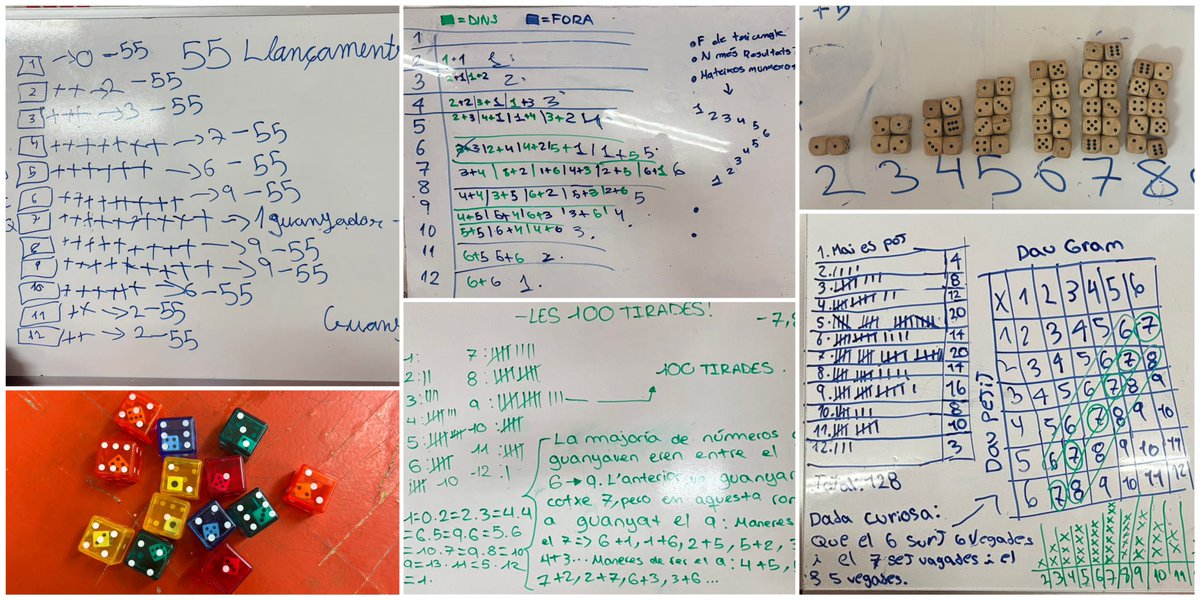 55 Llançament
1 → 0 - 55
2 ++ → 2 - 55
3 +++ → 3 - 55
4 +++++++ → 7 - 55
5 ++++++ → 6 - 55
6 → 9 - 55
7 → 1 guanyador
8 → 9 - 55
9 → 9 - 55
10 → 6 - 55
11 → 2 - 55
12 ++ → 2 - 55
Guany
= DINS = FORA
1
2 1+1
3 2+1 | 1+2 2.
4 2+2 | 3+1 | 1+3 3
5 2+3 | 4+1 | 1+4 | 3+2 4
6 2+4 | 4+2 | 5+1 | 1+5 5.
7 3+4 | 5+2 | 1+6 | 4+3 | 2+5 | 6+1 6
8 4+4 | 3+5 | 6+2 | 5+3 | 2+6 5
9 4+5 | 5+4 | 6+3 | 3+6 4
10 5+5 | 6+4 | 4+6 3.
11 6+5 5+6 2.
12 6+6 1.
• F de triangle
• N més Resultats
• Mateixos numeros
1 2 3 4 5 6
1 2 3 4 5 6
+5
2 3 4 5 6 7 8
- LES 100 TIRADES!
- 7,8
1:
2:
3:
4:
5:
6:
7:
8:
9:
10:
11:
12:
100 TIRADES.
La majoría de números
guanyaven eren entre el
6 → 9. L'anterior va guanyar
cotxe 7, pero en aquesta ron
a guanyat el 9: Maneres
el 7 => 6+1, 1+6, 2+5, 5+2, 3
4+3... Maneres de fer el 9: 4+5,
7+2, 2+7, 6+3, 3+6...
1=0.2=2.3=4.4
=6.5=9.6=5.6
=10.7=9.8=10
9=13.11=5.12
=1.
1. Mai es pot
2. 4
3. 8
4. 12
5. 20
6. 14
7. 20
8. 17
9. 16
10. 8
11. 10
12. 3
Total: 128
Dau Gram
Dau petit
X 1 2 3 4 5 6
1 2 3 4 5 6 7
2 3 4 5 6 7 8
3 4 5 6 7 8 9
4 5 6 7 8 9 10
5 6 7 8 9 10 11
6 7 8 9 10 11 12
Dada curiosa:
Que el 6 surt 6 vegades
i el 7 set vagades i el
8 5 vegades.
2 3 4 5 6 7 8 9 10 11